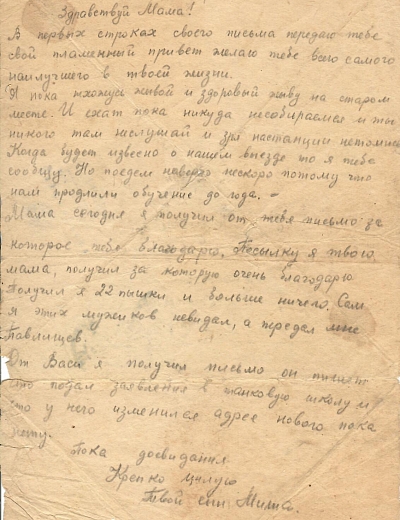 Здравствуй Мама!
В первых строках своего письма передаю тебе
свой пламенный привет желаю тебе всего самого
наилучшего в твоей жизни.
Я пока нхожусь живой и здоровый живу на старом
месте. И ехат пока никуда несобираемся и ты
никого там неслушай и зря настанции
Когда будет извесно о нашем то я тебе
сообщу. Но поедем наверно нескоро потому что
нам продлили обучение до года. –
Мама сегодня я получил от тебя письмо за
которое тебе благодарю. Посылку я твою
мама, получил за которую очень благодарю
Получил я 22 пышки и больше ничего. Сам
я этих мужиков невидал, а передал мне
Павлищев.
От Васи я получил письмо он пишет
что подал заявления в танковую школу и
что у него изменился адрес нового пока
нету.
Пока досвидания
Крепко цилую
Твой сын Миша.